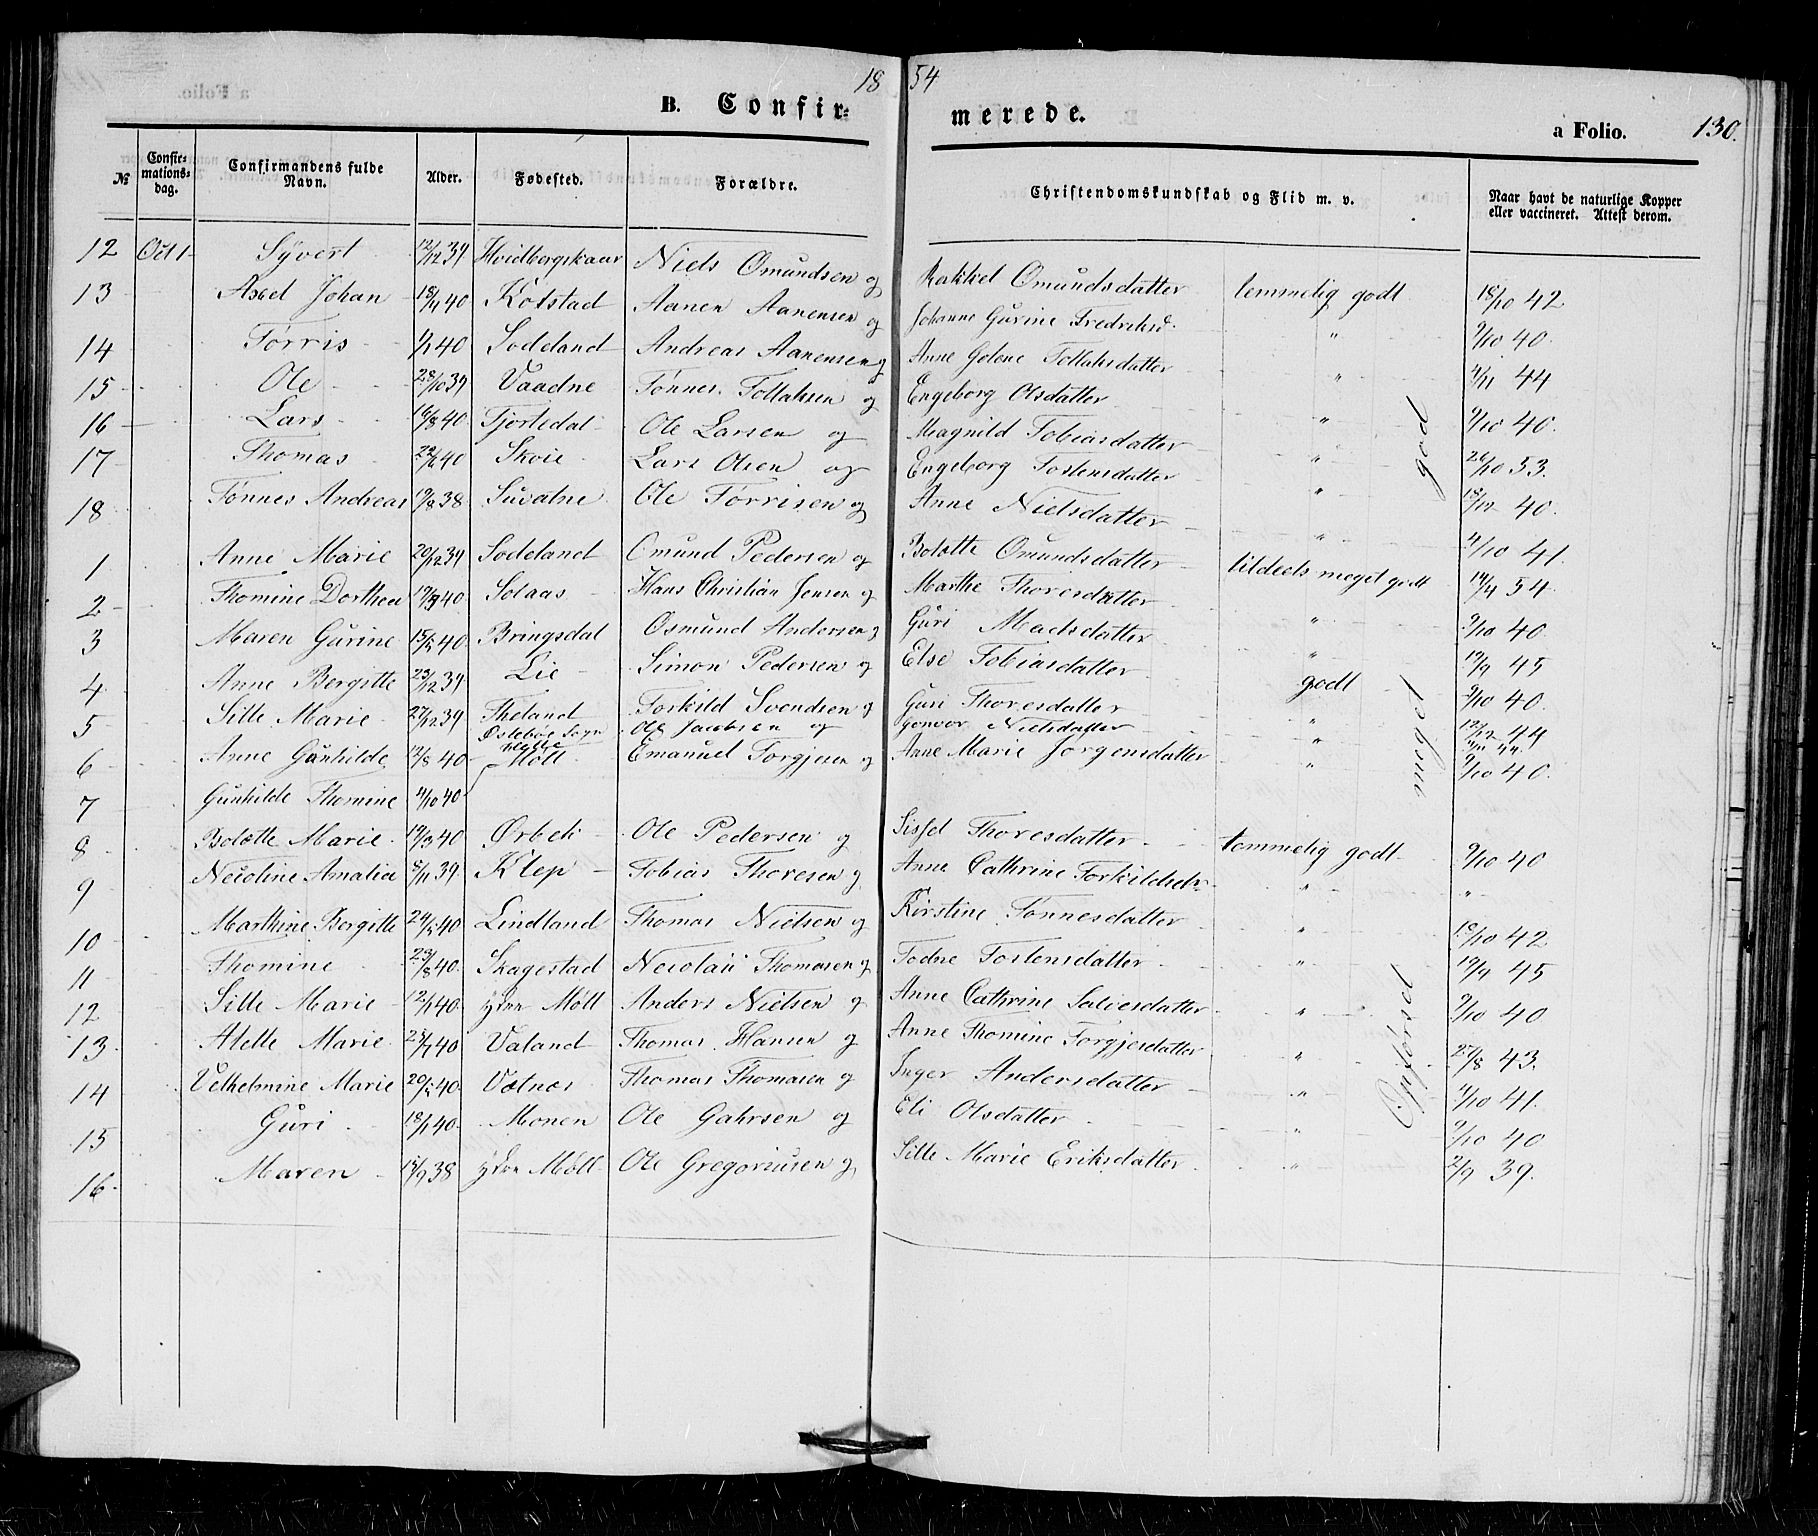 1854
B. Confirmerede.
a Folio. 130.
№ Confirmationsdag. Confirmandens fulde Navn. Alder. Fødested. Forældre. Christendomskundskab og Flid m. v. Naar havt de naturlige Kopper eller vaccineret. Attest derom.
12 Oct 1 Syvert 12/12 39 Hvidbergskaar Niels Omundsen og Rakkel Omundsdatter temmelig godt 18/10 42
13 Axel Johan 18/4 40 Kolstad Aanen Aanensen og Johanne Gurine Fredriksd. " 9/10 40
14 Tørris 40 Sodeland Andreas Aanensen og Anne Golene Tollaksdatter " 4/11 44
15 Ole 28/10 39 Vaadne Tønnes Tollaksen og Engeborg Olsdatter " 9/10 40.
16 Lars 16/8 40 Tjortedal Ole Larsen og Magnild Tobiasdatter " 26/10 53.
17 Thomas 40 Skoie Lars Olsen og Engeborg Tostensdatter " 18/12 40.
18 Tønnes Andreas 19/8 38 Suvatne Ole Tørrisen og Anne Nielsdatter " 4/10 41.
1 Anne Marie 20/12 39 Sodeland Omund Pedersen og Bolatte Omundsdatter tildeels meget godt 19/4 54.
2 Thomine Dorthea 40 Solaas Hans Christian Jensen og Marthe Thoresdatter " 9/10 40
3 Maren Gurine 40 Bringsdal Osmund Andersen og Guri Madsdatter " 19/9 45
4 Anne Bergitte 23/12 39 Lie Simon Pedersen og Else Tobiasdatter godt 9/10 40
5 Sille Marie 27/12 39 Theland Torkild Svendsen og Guri Thoresdatter " 12/12 44
Ole Jacobsen og Gonvor Nielsdatter
6 Anne Gunhilde 12/8 40 Møll Emanuel Torgjesen og Anne Marie Jorgensdatter " 9/10 40.
7 Gunhilde Thomine 4/10 40
8 Bolette Marie 19/3 40 Ørbek Ole Pedersen og Sissel Thoresdatter temmelig godt 9/10 40
9 Necoline Amalia 8/11 39 Klep Tobias Thoresen og Anne Cathrine Torkildsdr " "
10 Marthine Bergitte 40 Lindland Thomas Nielsen og Kirstine Tønnesdatter " 18/10 42
11 Thomine 23/8 40 Skagestad Necolai Thomasen og Todne Tostensdatter " 19/9 45
12 Sille Marie 40 Ydre Møll Anders Nielsen og Anne Cathrine Salvesdatter " 9/10 40
13 Alette Marie 40 Valand Thomas Hansen og Anne Thomine Torgjesdatter " 27/8 43.
14 Velhelmine Marie 40 Vatnes Thomas Thomasen og Inger Andersdatter " 4/10 41.
15 Guri 40 Monen Ole Gahrsen og Eli Olsdatter " 9/10 40
16 Maren 38 Ydre Møll Ole Gregoriusen og Sille Marie Eriksdatter " 2/9 39.
Opførsel meget god